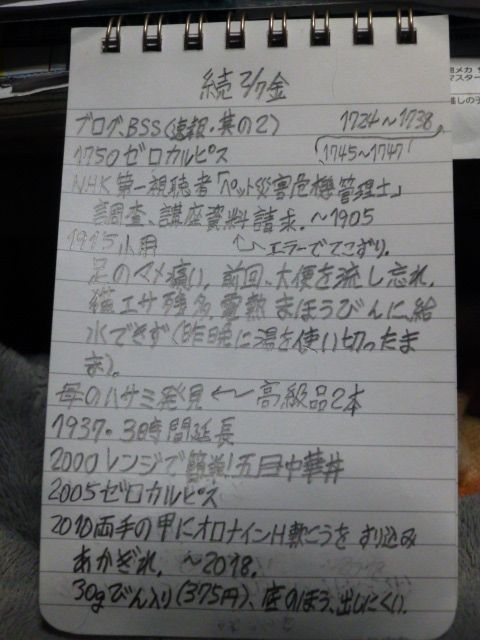 続 2/7金
ブログ、BSS(速報・其の2) 1724〜1738、
1750ゼロカルピス 1745〜1747
NHK第一視聴者「ペット災害危機管理士」
調査、講座資料請求。〜1905
1915小用 エラーでてこずり。
足のマメ痛い。前回、大便を流し忘れ。
猫エサ残多、電熱まほうびんに給
水できず(昨晩に湯を使い切ったま
ま)。
母のハサミ発見 ← 高級品2本
1937・3時間延長
2000レンジで簡単!五目中華丼
2005ゼロカルピス
2010両手の甲にオロナインH軟こうをすり込み
あかぎれ。〜2018。
30gびん入り(375円)、底のほう、出しにくい。
用メカ
マスター
推しの子